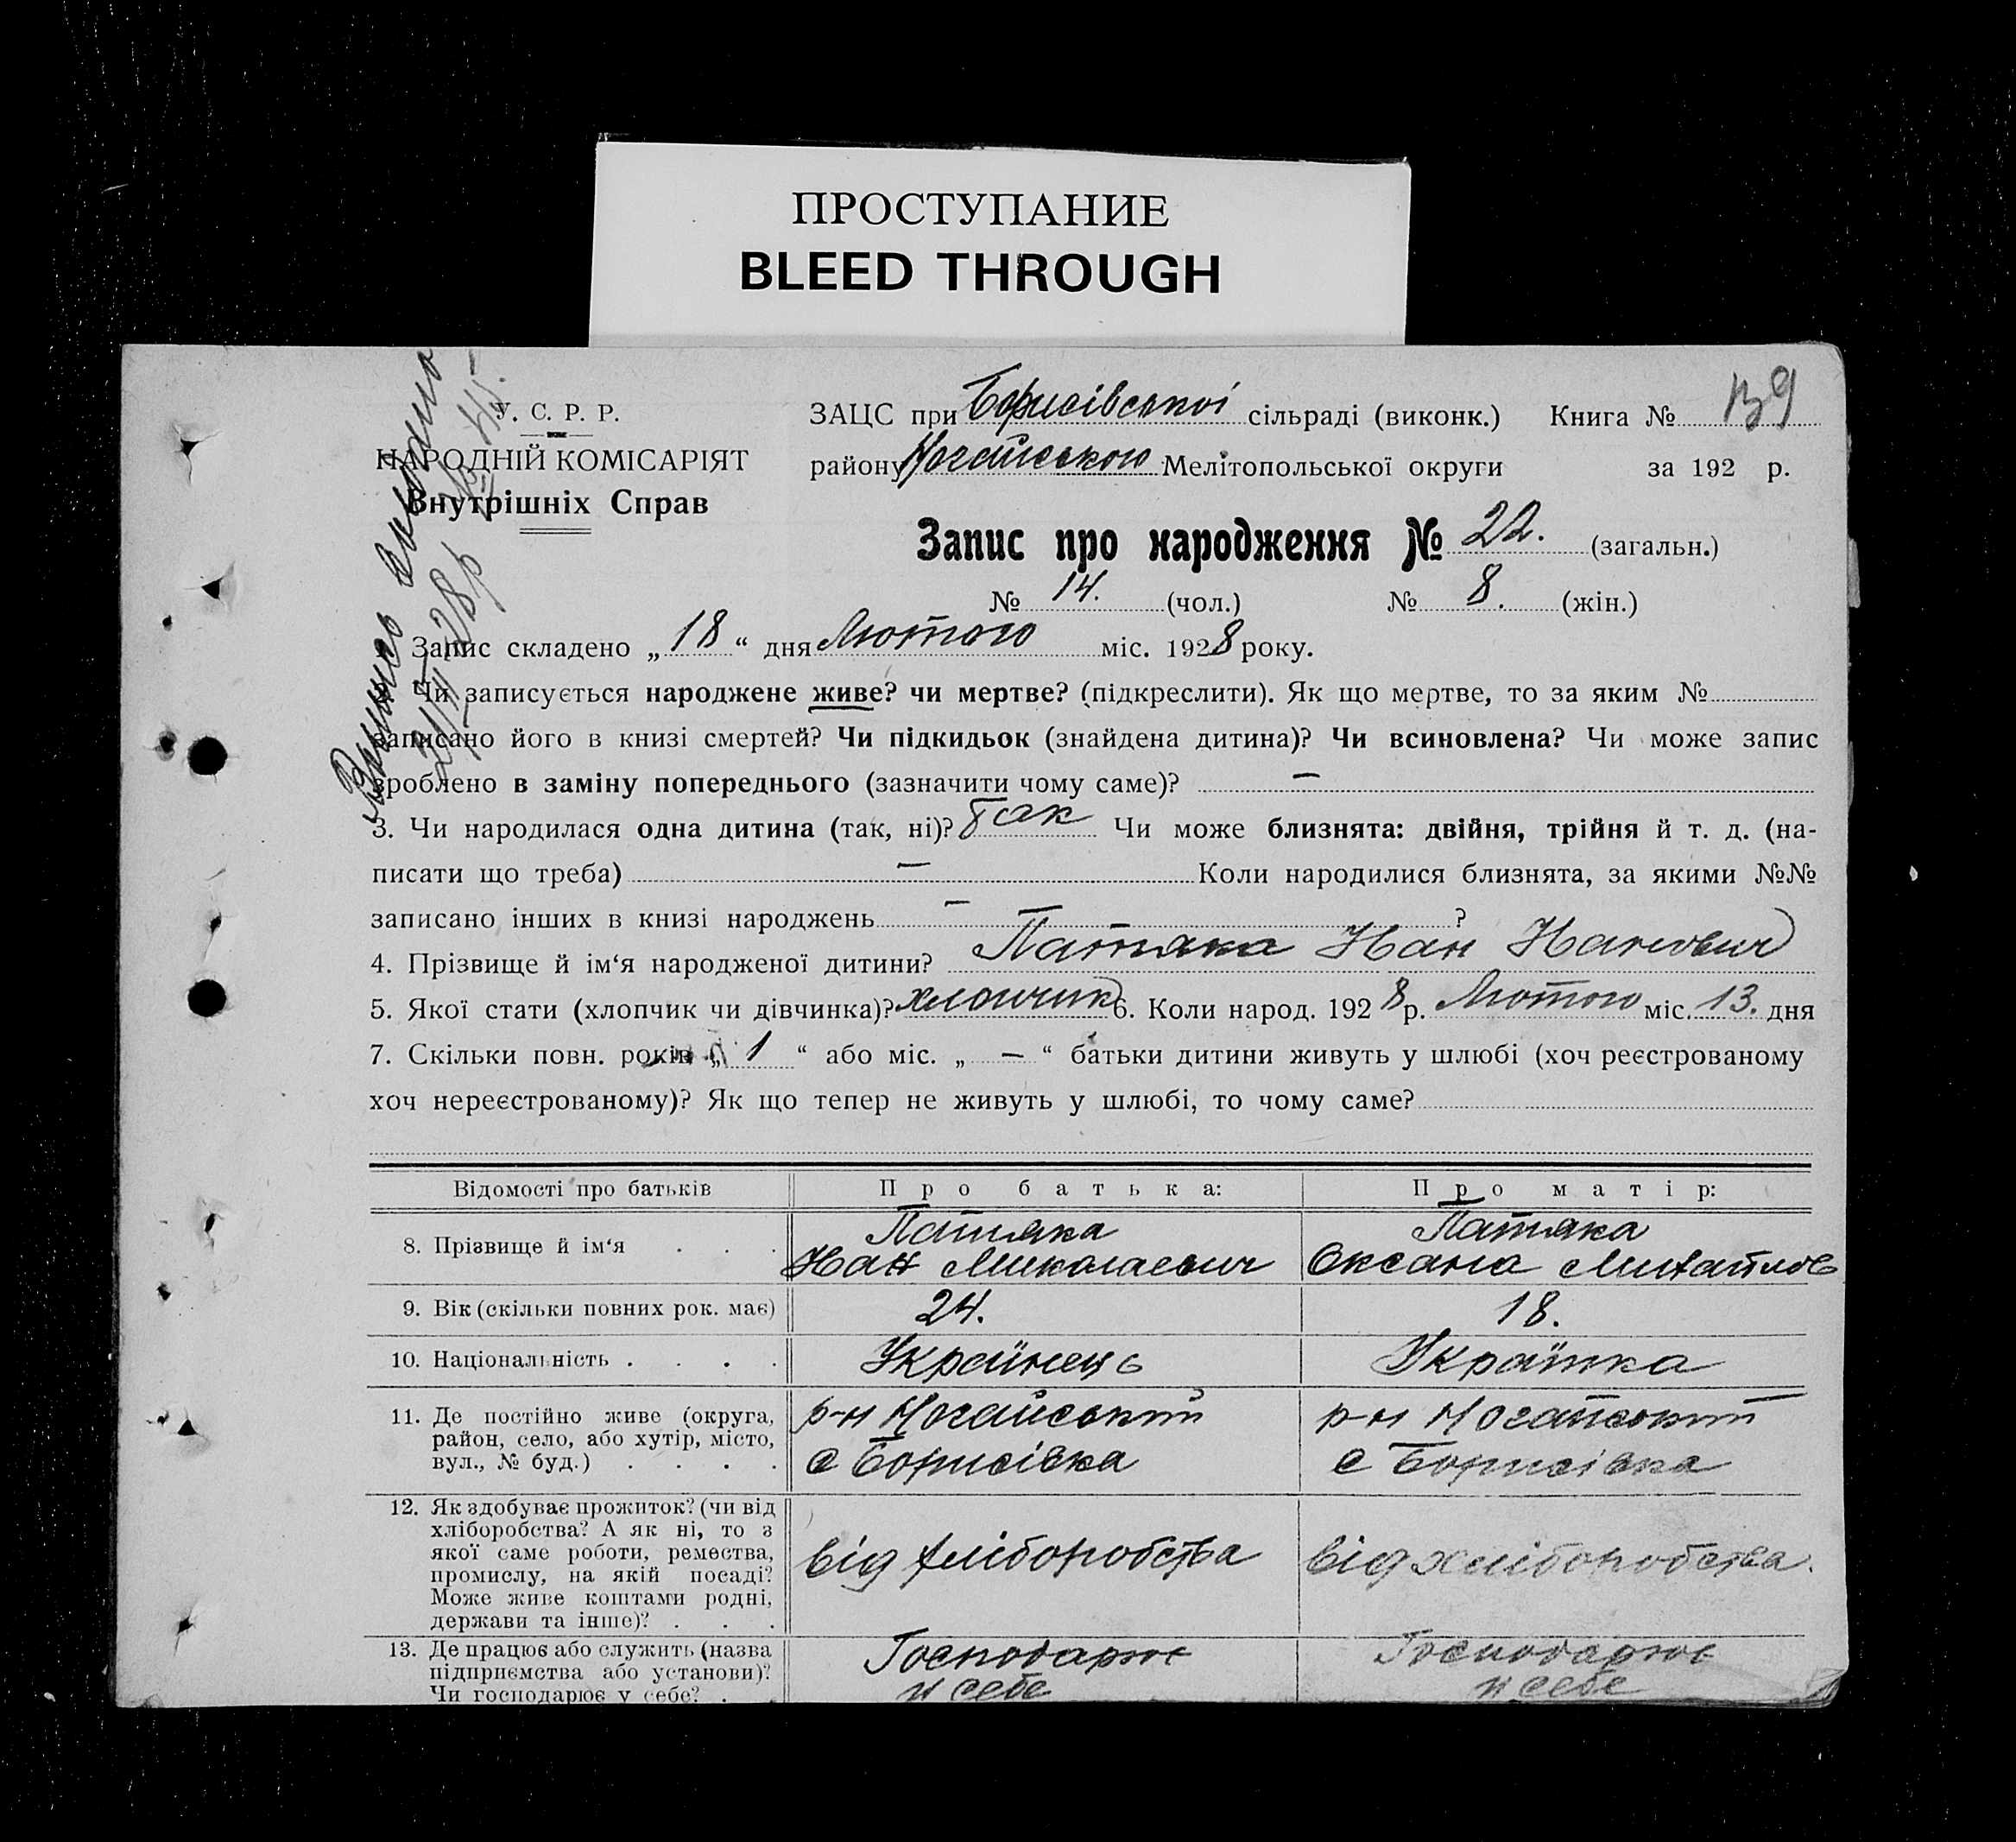 ПРОСТУПАНИЕ
BLEED THROUGH
У. С. Р. Р.
НАРОДНІЙ КОМІСАРІЯТ
Внутрішніх Справ
ЗАЦС при Борисівської сільраді (виконк.) Книга № 139
району Ногайського Мелітопольської округи за 192 р.
Запис про народження № 22. (загальн.)
№ 14. (чол.) № 8. (жін.)
Запис складено „ 18 “ дня Лютого міс. 1928 року.
Чи записується народжене живе? чи мертве? (підкреслити). Як що мертве, то за яким №
записано його в книзі смертей? Чи підкидьок (знайдена дитина)? Чи всиновлена? Чи може запис
зроблено в заміну попереднього (зазначити чому саме)? —
3. Чи народилася одна дитина (так, ні)? Так Чи може близнята: двійня, трійня й т. д. (на-
писати що треба) — Коли народилися близнята, за якими №№
записано інших в книзі народжень — ?
4. Прізвище й ім‘я народженої дитини? Патяка Нан Нанович
5. Якої стати (хлопчик чи дівчинка)? хлопчик 6. Коли народ. 1928 р. Лютого міс. 13. дня
7. Скільки повн. років „ 1 “ або міс. „ — “ батьки дитини живуть у шлюбі (хоч реєстрованому
хоч нереєстрованому)? Як що тепер не живуть у шлюбі, то чому саме?
Відомості про батьків Про батька: Про матір:
8. Прізвище й ім‘я . . . Патяка Нан Миколаевич Патяка Оксана Михайлов
9. Вік (скільки повних рок. має) 24. 18.
10. Національність . . . . Українець Українка
11. Де постійно живе (округа, р-н Ногайський р-н Ногайський
район, село, або хутір, місто, с Борисівка с Борисівка
вул., № буд.) . . . .
12. Як здобуває прожиток? (чи від
хліборобства? А як ні, то з
якої саме роботи, ремества, від хліборобства від хліборобства.
промислу, на якій посаді?
Може живе коштами родні,
держави та інше)? . . .
13. Де працює або служить (назва Господарює Господарює
підприємства або установи)? у себе у себе
Чи господарює у себе? . .